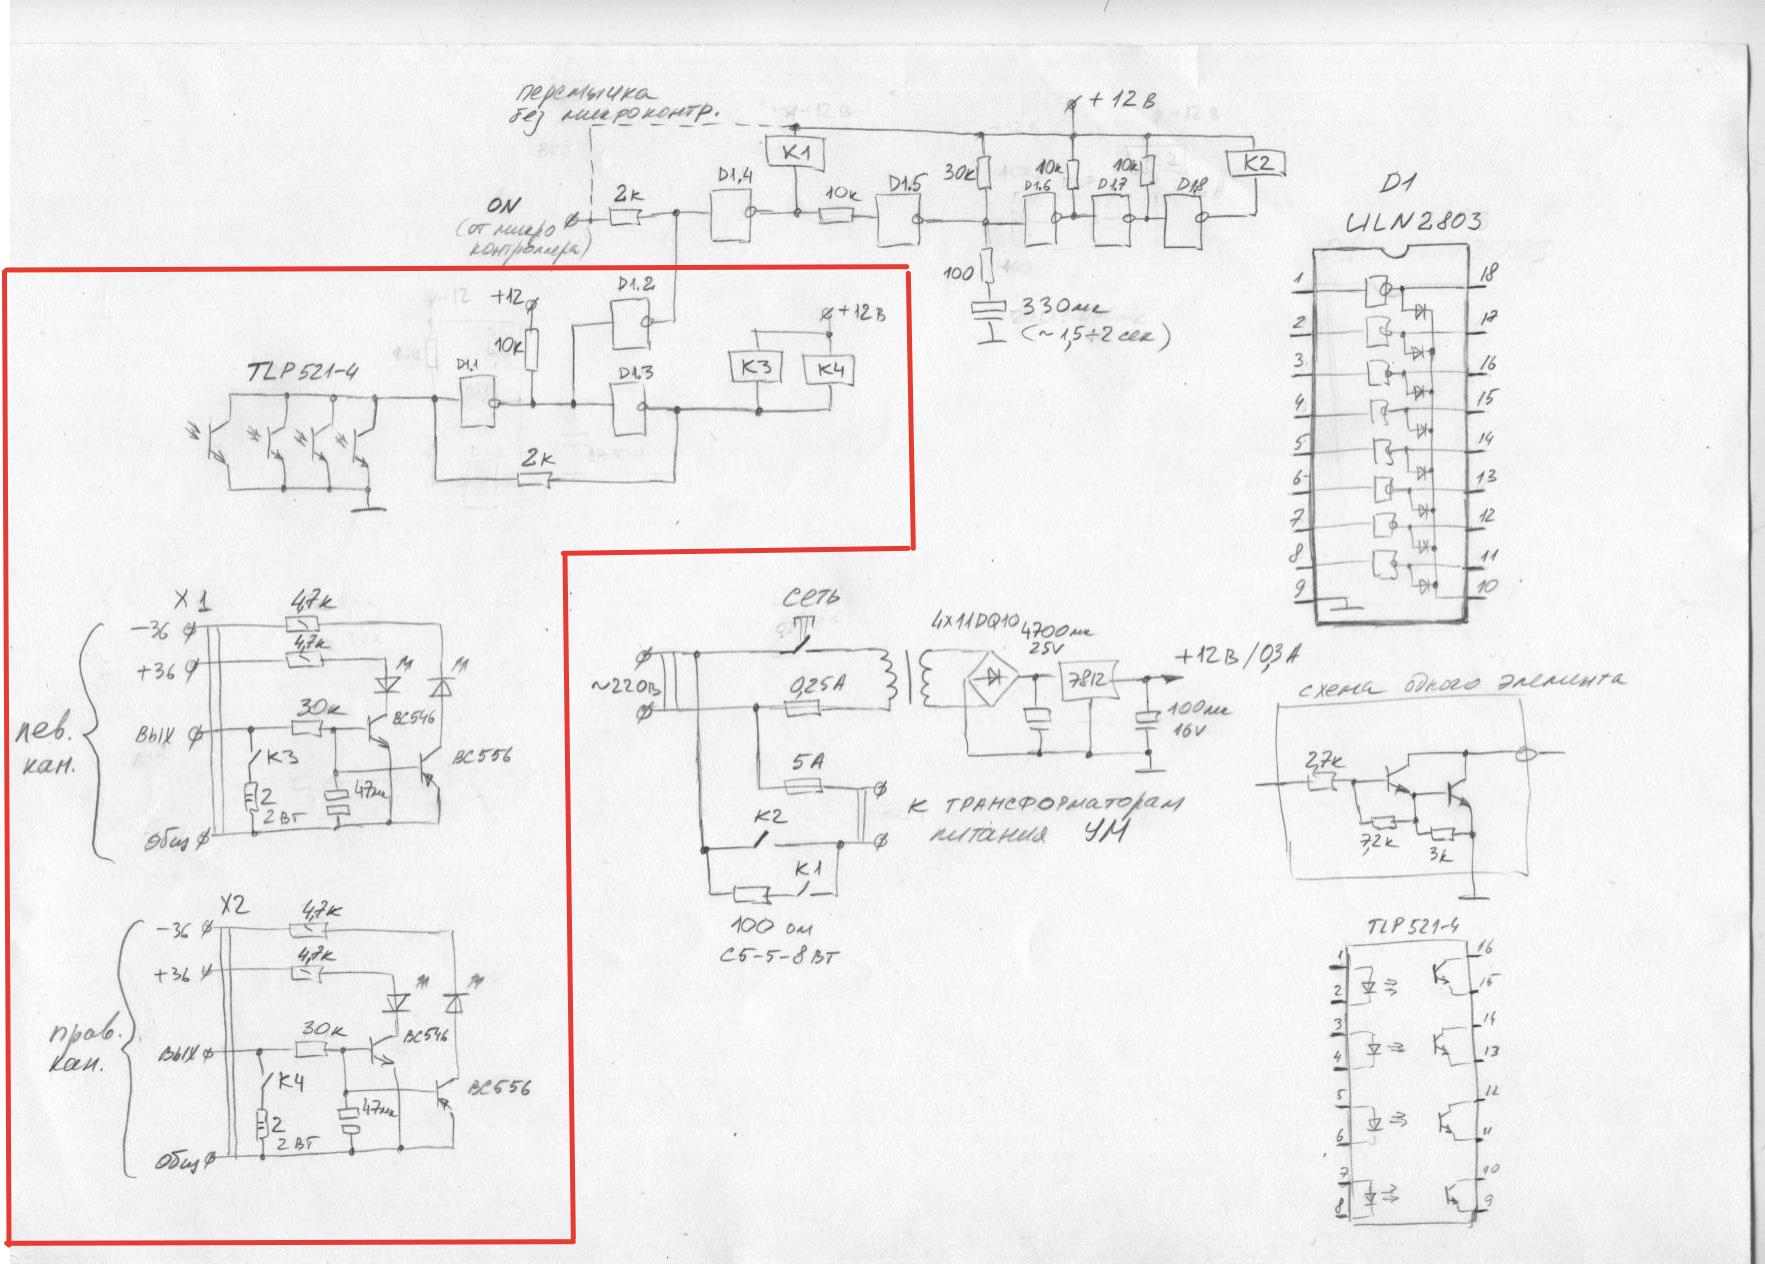 перемычка
без микроконтр.
+12В
K1
K2
D1.4
D1.5
30к
10к
10к
D1.6
D1.7
D1.8
ON
(от микро
контроллера)
2к
10к
100
330мк
(~1,5÷2 сек)
D1
ULN2803
1
2
3
4
5
6
7
8
9
18
17
16
15
14
13
12
11
10
+12
10к
D1.2
+12В
TLP521-4
D1.1
D1.3
K3
K4
2к
X1
4,7к
-36
4,7к
+36
30к
BC546
ВЫХ
K3
BC556
лев.
кан.
2
2Вт
47мк
Общ
X2
4,7к
-36
4,7к
+36
30к
BC546
ВЫХ
K4
BC556
прав.
кан.
2
2Вт
47мк
Общ
сеть
~220В
0,25А
4x11DQ10
4700мк
25V
7812
+12В/0,3А
100мк
16V
5А
К ТРАНСФОРМАТОРАМ
питания УМ
K2
K1
100 ом
С5-5-8Вт
схема одного элемента
2,7к
7,2к
3к
TLP521-4
1
2
3
4
5
6
7
8
16
15
14
13
12
11
10
9